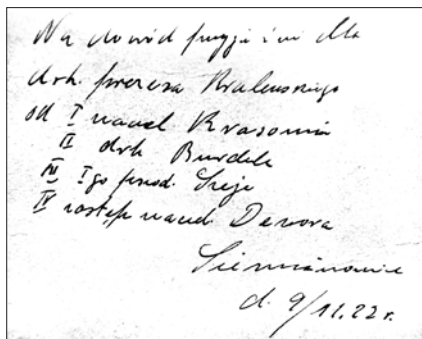 Na dowód przyjaźni dla
drh. prezesa Kralewskiego
od I naczel Krasonia
II drh Burdele
III I go prod. Sieje
IV zastęp naczel Denora
Siemianowice
d. 9/11.22 r.